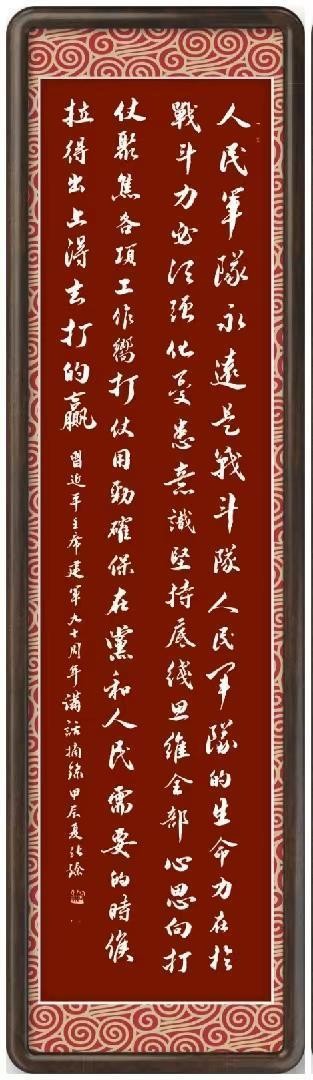 人民軍隊永遠是戰斗隊人民軍隊的生命力在於
戰斗力必須强化憂患意識堅持底綫思維全部心思向打
仗聚焦各項工作嚮打仗用勁確保在黨和人民需要的時候
拉得出上得去打的贏
習近平主席建軍九十周年講話摘錄甲辰夏